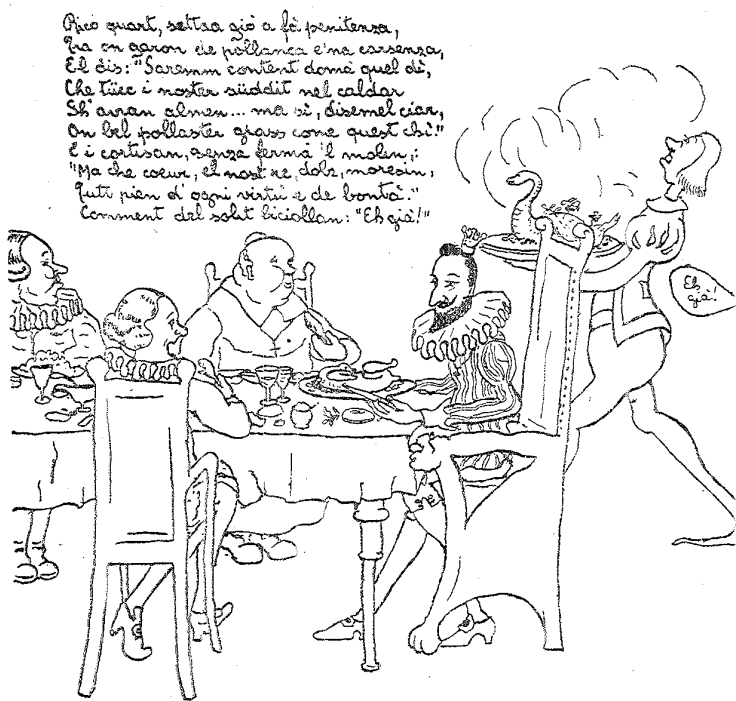 Ricò quart, settaa giò a fà penitenza,
Tra on garon de pollanca e 'na carsenza,
El dis: "Saremm content domà quel dì,
Che tücc i noster süddit nel caldar
Sh'avran almen... ma sì, disemel ciar,
On bel pollaster grass come quest chì!"
E i cortisan, senza fermà 'l molin,:
"Ma che coeur, el nost re, dolz, moresin,
Tutt pien d'ogni virtù e de bontà."
Comment del solit biciollan: "Eh già!"
Eh
già!